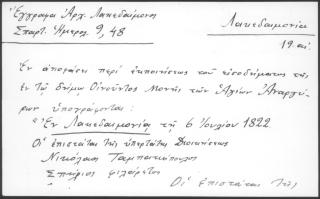 Ἔγγραφα Ἀρχ. Λακεδαίμονος
Σπαρτ. Ἥμερος 9, 48
Λακεδαιμονία
19 αἰ.
Ἐν ἀποφάσει περί ἐκποιήσεως τοῦ εἰσοδήματος τῆς
ἐν τῷ δήμῳ Οἰνοῦντος Μονῆς τῶν Ἁγίων Ἀναργύ-
ρων ὑπογράφονται:
"Ἐν Λακεδαιμονίᾳ τῇ 6 Ἰουλίου 1822
Οἱ ἐπιστάται τῆς ὑπερτάτης Διοικήσεως
Νικόλαος Ταμπακόπουλος
Σπυρίδος φιλάρετος
Οἱ ἐπιστάται τῆς